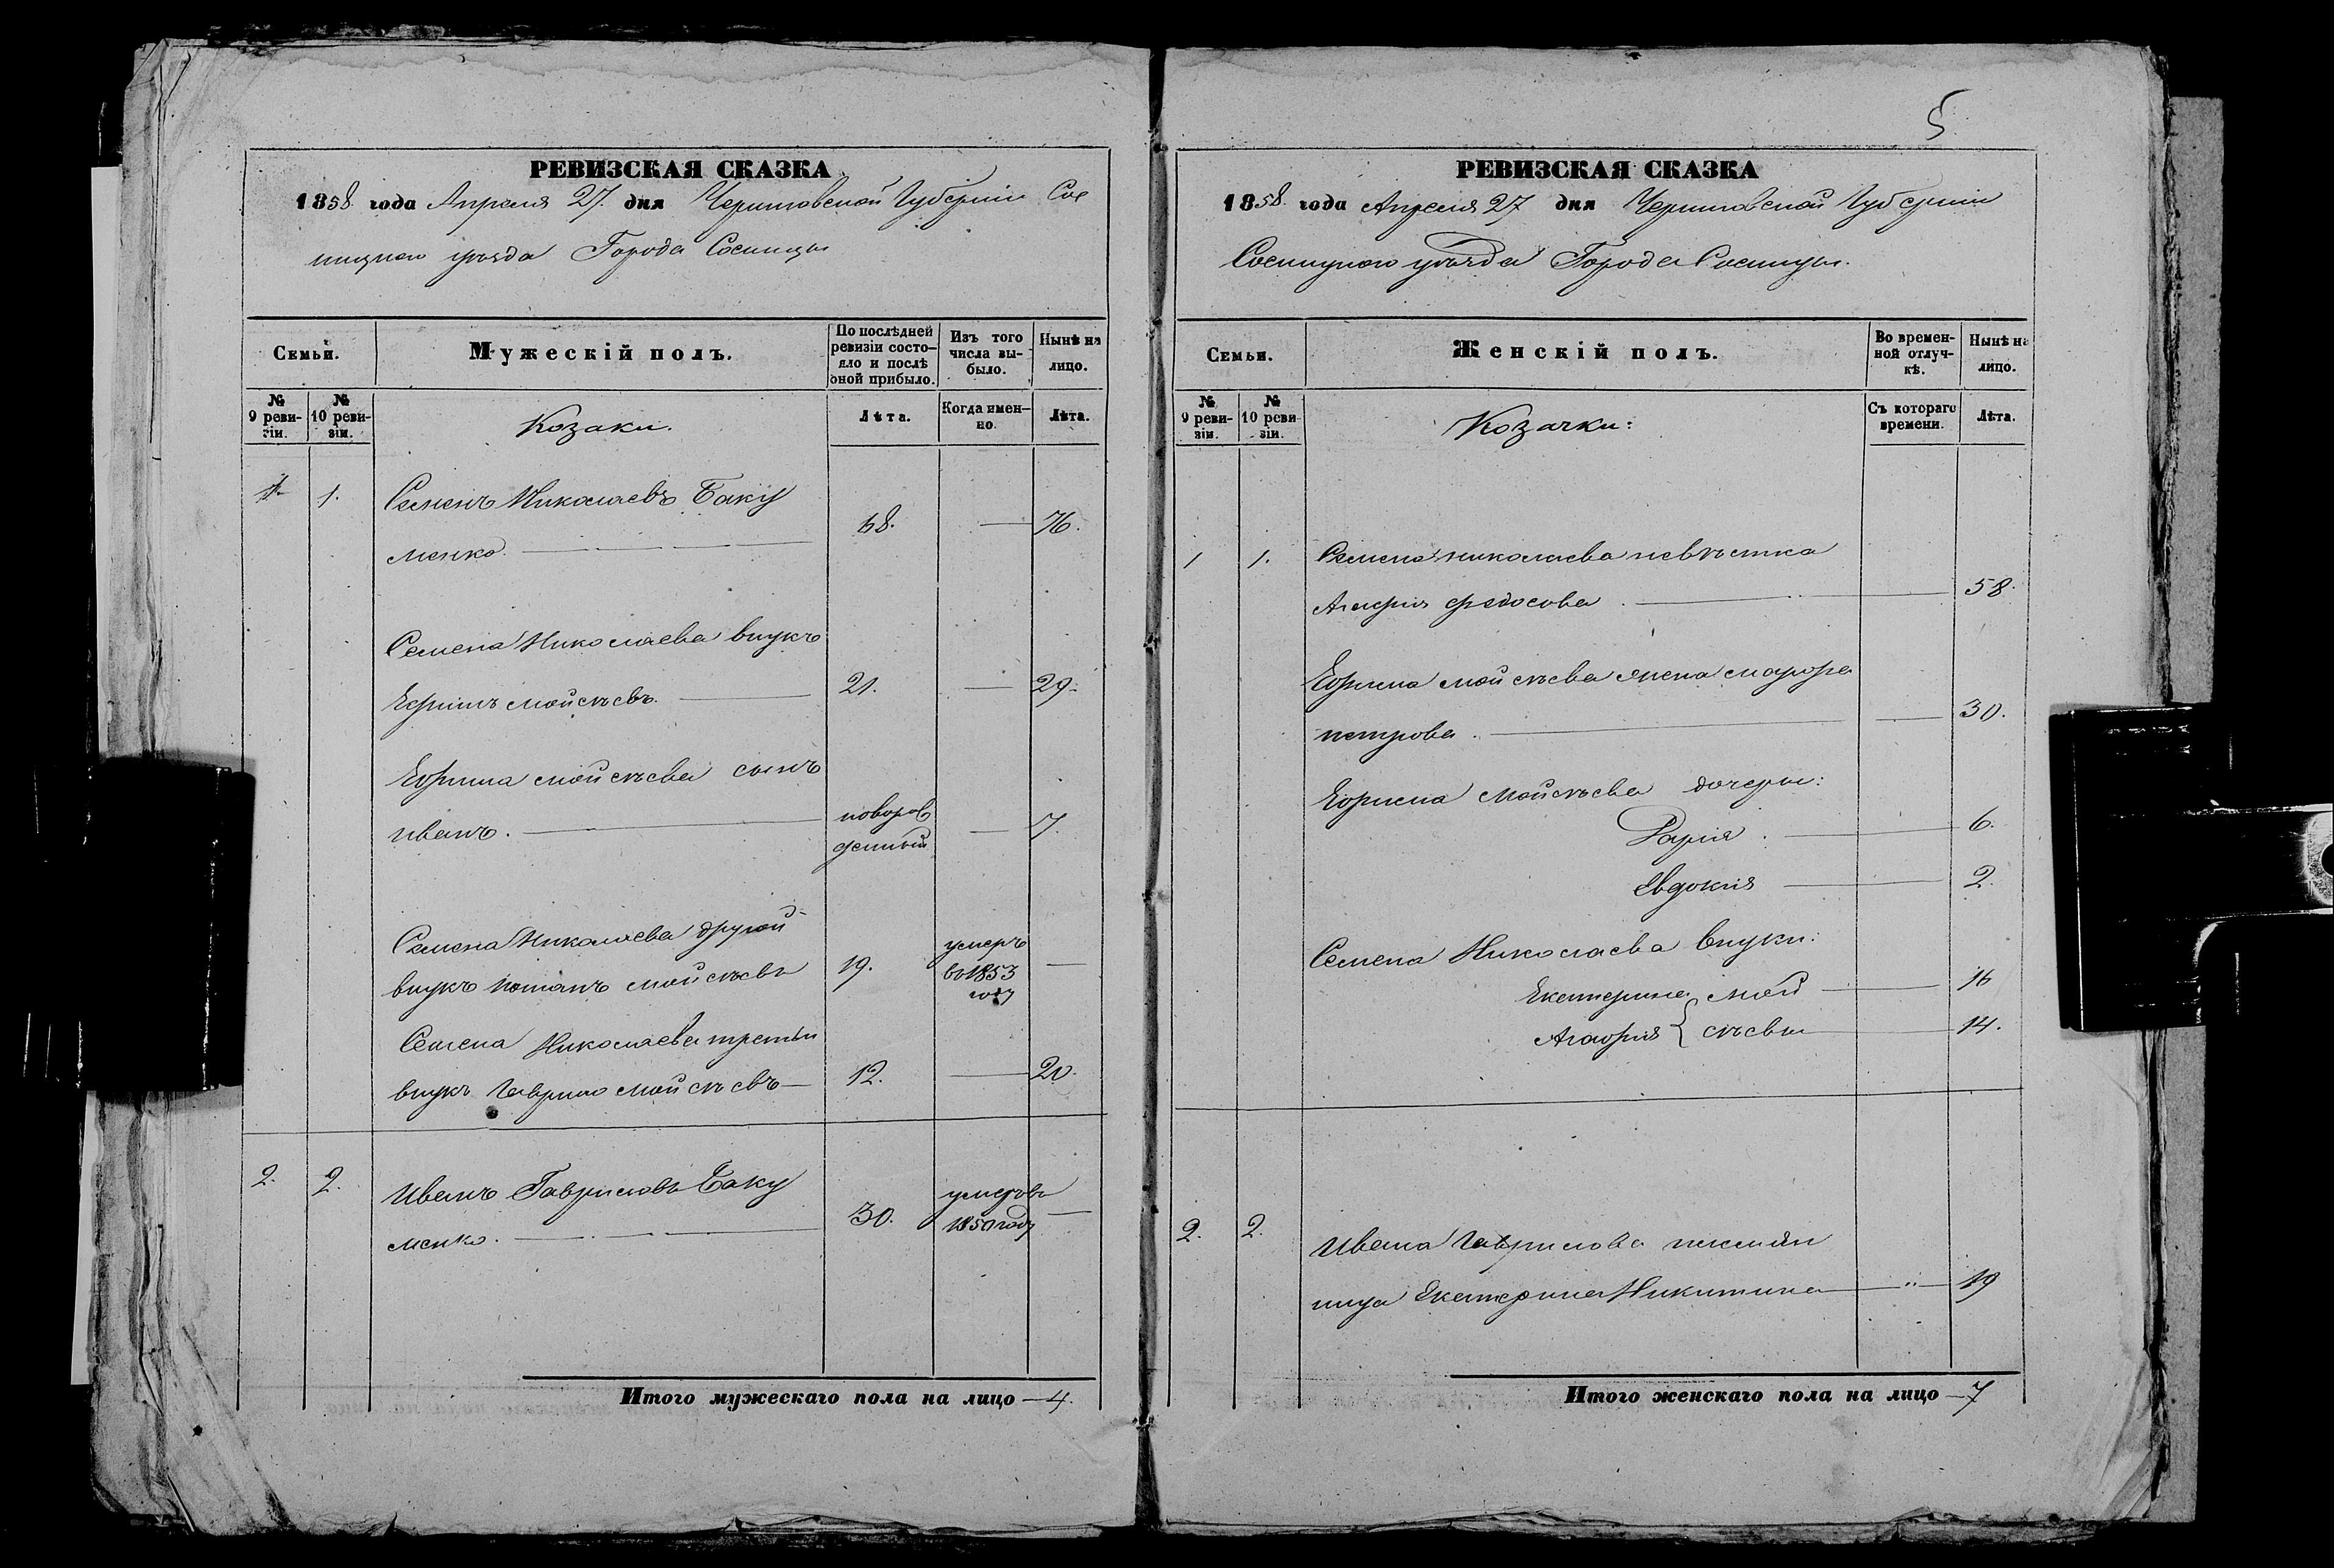 РЕВИЗСКАЯ СКАЗКА
1858. года Апреля 27. дня Черниговской Губерніи Сос
ницкого уѣзда Города Сосницы
Семьи.
Мужескій полъ.
По послѣдней ревизіи состояло и послѣ оной прибыло.
Изъ того числа выбыло.
Нынѣ на лицо.
№ 9 ревизіи.
№ 10 ревизіи.
Козаки.
Лѣта.
Когда именно.
Лѣта.
1. 1. Семенъ Николаевъ Баку
менко. 68. — 76.
Семена Николаева внукъ
Ефимъ Мойсѣевъ. 21. — 29.
Ефима Мойсѣева сынъ
Иванъ. новорож
денный — 7.
Семена Николаева другой
внукъ Потапъ Мойсѣевъ 19. умеръ
въ 1853
году —
Семена Николаева третьи
внукъ Гаврило Мойсѣевъ — 12. — 20.
2. 2. Иванъ Гавриловъ Баку
менко. 30. умеръ въ
1850 году —
Итого мужескаго пола на лицо — 4.
5
РЕВИЗСКАЯ СКАЗКА
1858. года Апреля 27 дня Черниговской Губерніи
Сосницкого уѣзда Города Сосницы.
Семьи.
Женскій полъ.
Во временной отлучкѣ.
Нынѣ на лицо.
№ 9 ревизіи.
№ 10 ревизіи.
Козачки:
Съ котораго времени.
Лѣта.
1 1. Семена Николаева невѣстка
Агафія Федосова. — 58.
Ефима Мойсѣева жена
Петрова. — 30.
Ефима Мойсѣева дочери:
Дарія. — 6.
Евдокія — 2.
Семена Николаева внуки:
Екатерина Мой — 16
Агафія } сѣевы — 14.
2. 2. Ивана Гаврилова племян
ница Екатерина Никитина — " — 19
Итого женскаго пола на лицо — 7